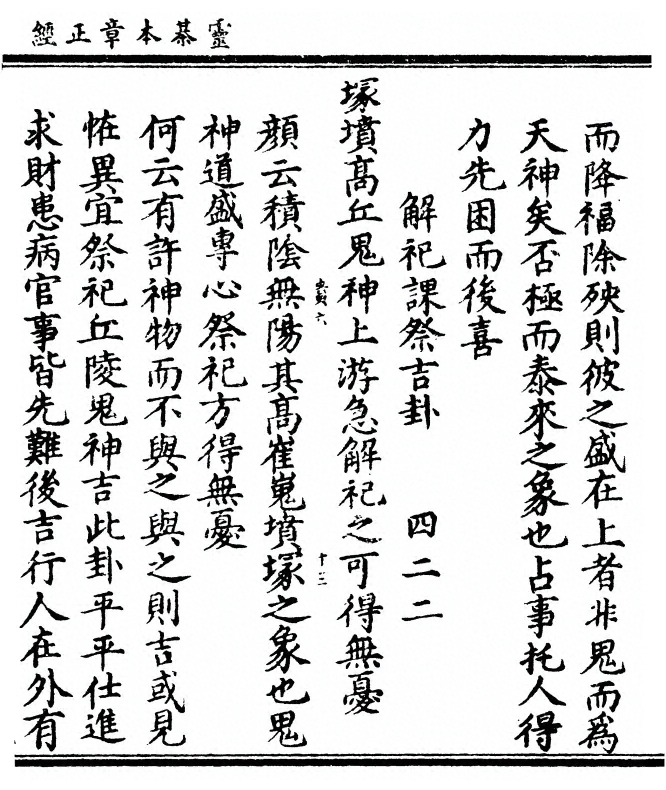 靈棊本章正經
而降福除殃則彼之盛在上者非鬼而為
天神矣否極而泰來之象也占事托人得
力先困而後喜
解祀課祭吉卦 四二二
塚墳高丘鬼神上游急解祀之可得無憂
顏云積陰無陽其高崔嵬墳塚之象也鬼
神道盛專心祭祀方得無憂
何云有許神物而不與之與之則吉或見
恠異宜祭祀丘陵鬼神吉此卦平平仕進
求財患病官事皆先難後吉行人在外有